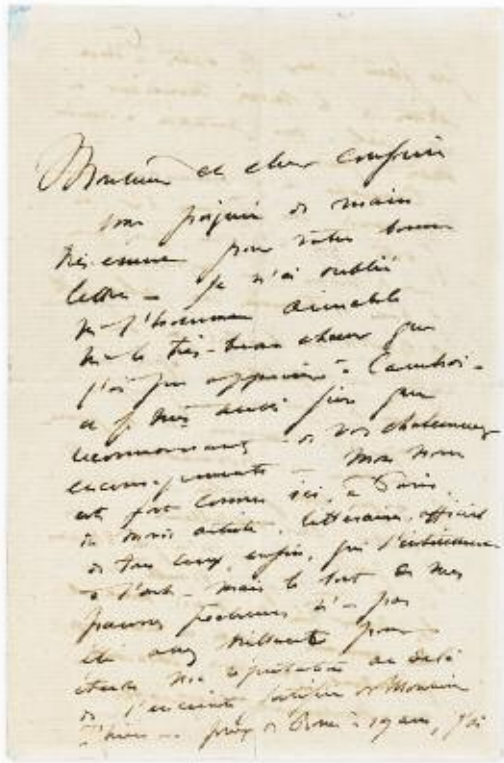 Monsieur et cher confrère
une poignée de main
très émue pour votre bonne
lettre – je n'ai oublié
ni l'homme aimable
ni le très-beau chœur que
j'ai pu apprécier à Cambrai –
et je suis aussi fier que
reconnaissant de vos chaleureux
encouragements – Mon nom
est fort connu ici, à Paris
du monde artiste, littéraire, officiel
de tous ceux, enfin, qui s'intéressent
à l'art – mais le sort de mes
pauvres n'a pas
été assez brillant pour
étendre ma réputation au delà
de l'enceinte fortifiée de Monsieur
Thiers – prix de Rome à 19 ans, j'ai